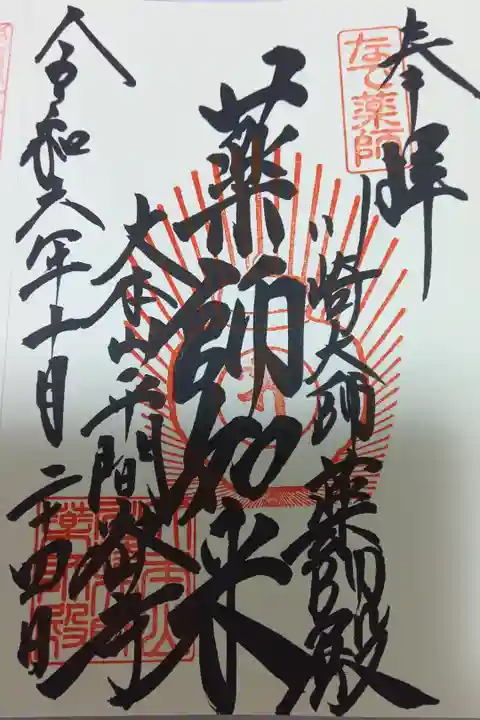 奉拝
なで薬師
川崎大師薬師殿
薬師如来
大本山平間教寺
令和六年十月二十四日